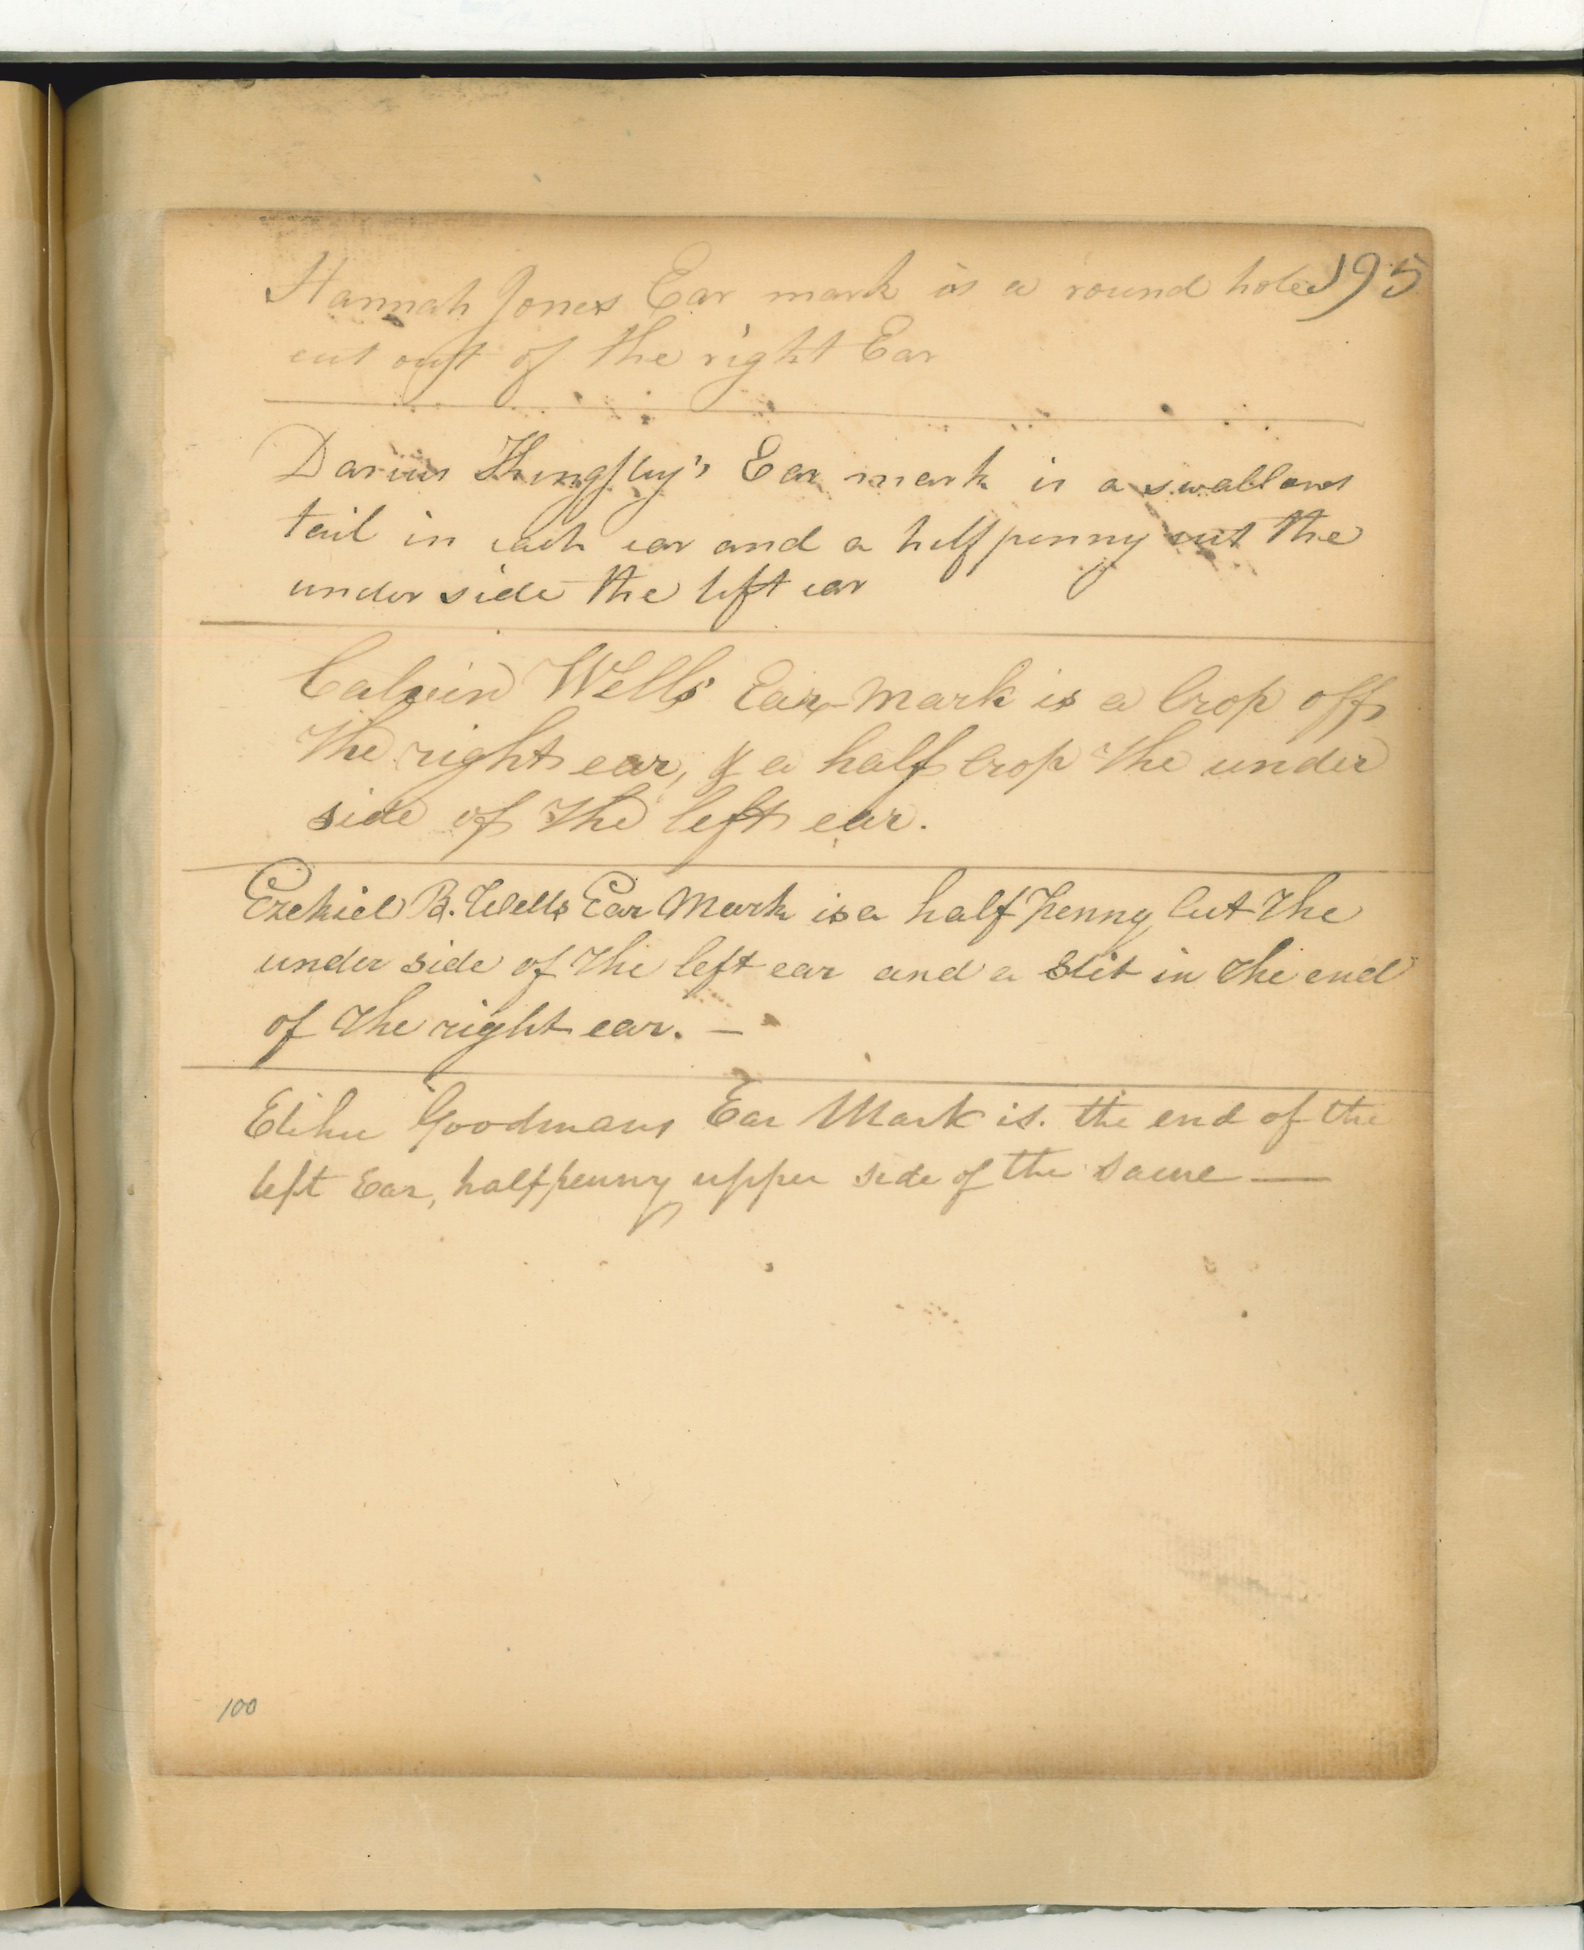 195
Hannah Jones Ear mark is a round hole
cut out of the right Ear
Darius Ear mark is a swallows
tail in each ear and a half penny cut the
under side the left ear
Calvin Wells' Ear-Mark is a Crop off
the right ear, & a half Crop the under
side of the left ear.
Ezekiel B. Wells Ear Mark is a half Penny Cut the
under side of the left ear and a Slit in the end
of the right ear. —
Elihu Goodmans Ear Mark is. the end of the
left Ear, halfpenny upper side of the same —
100